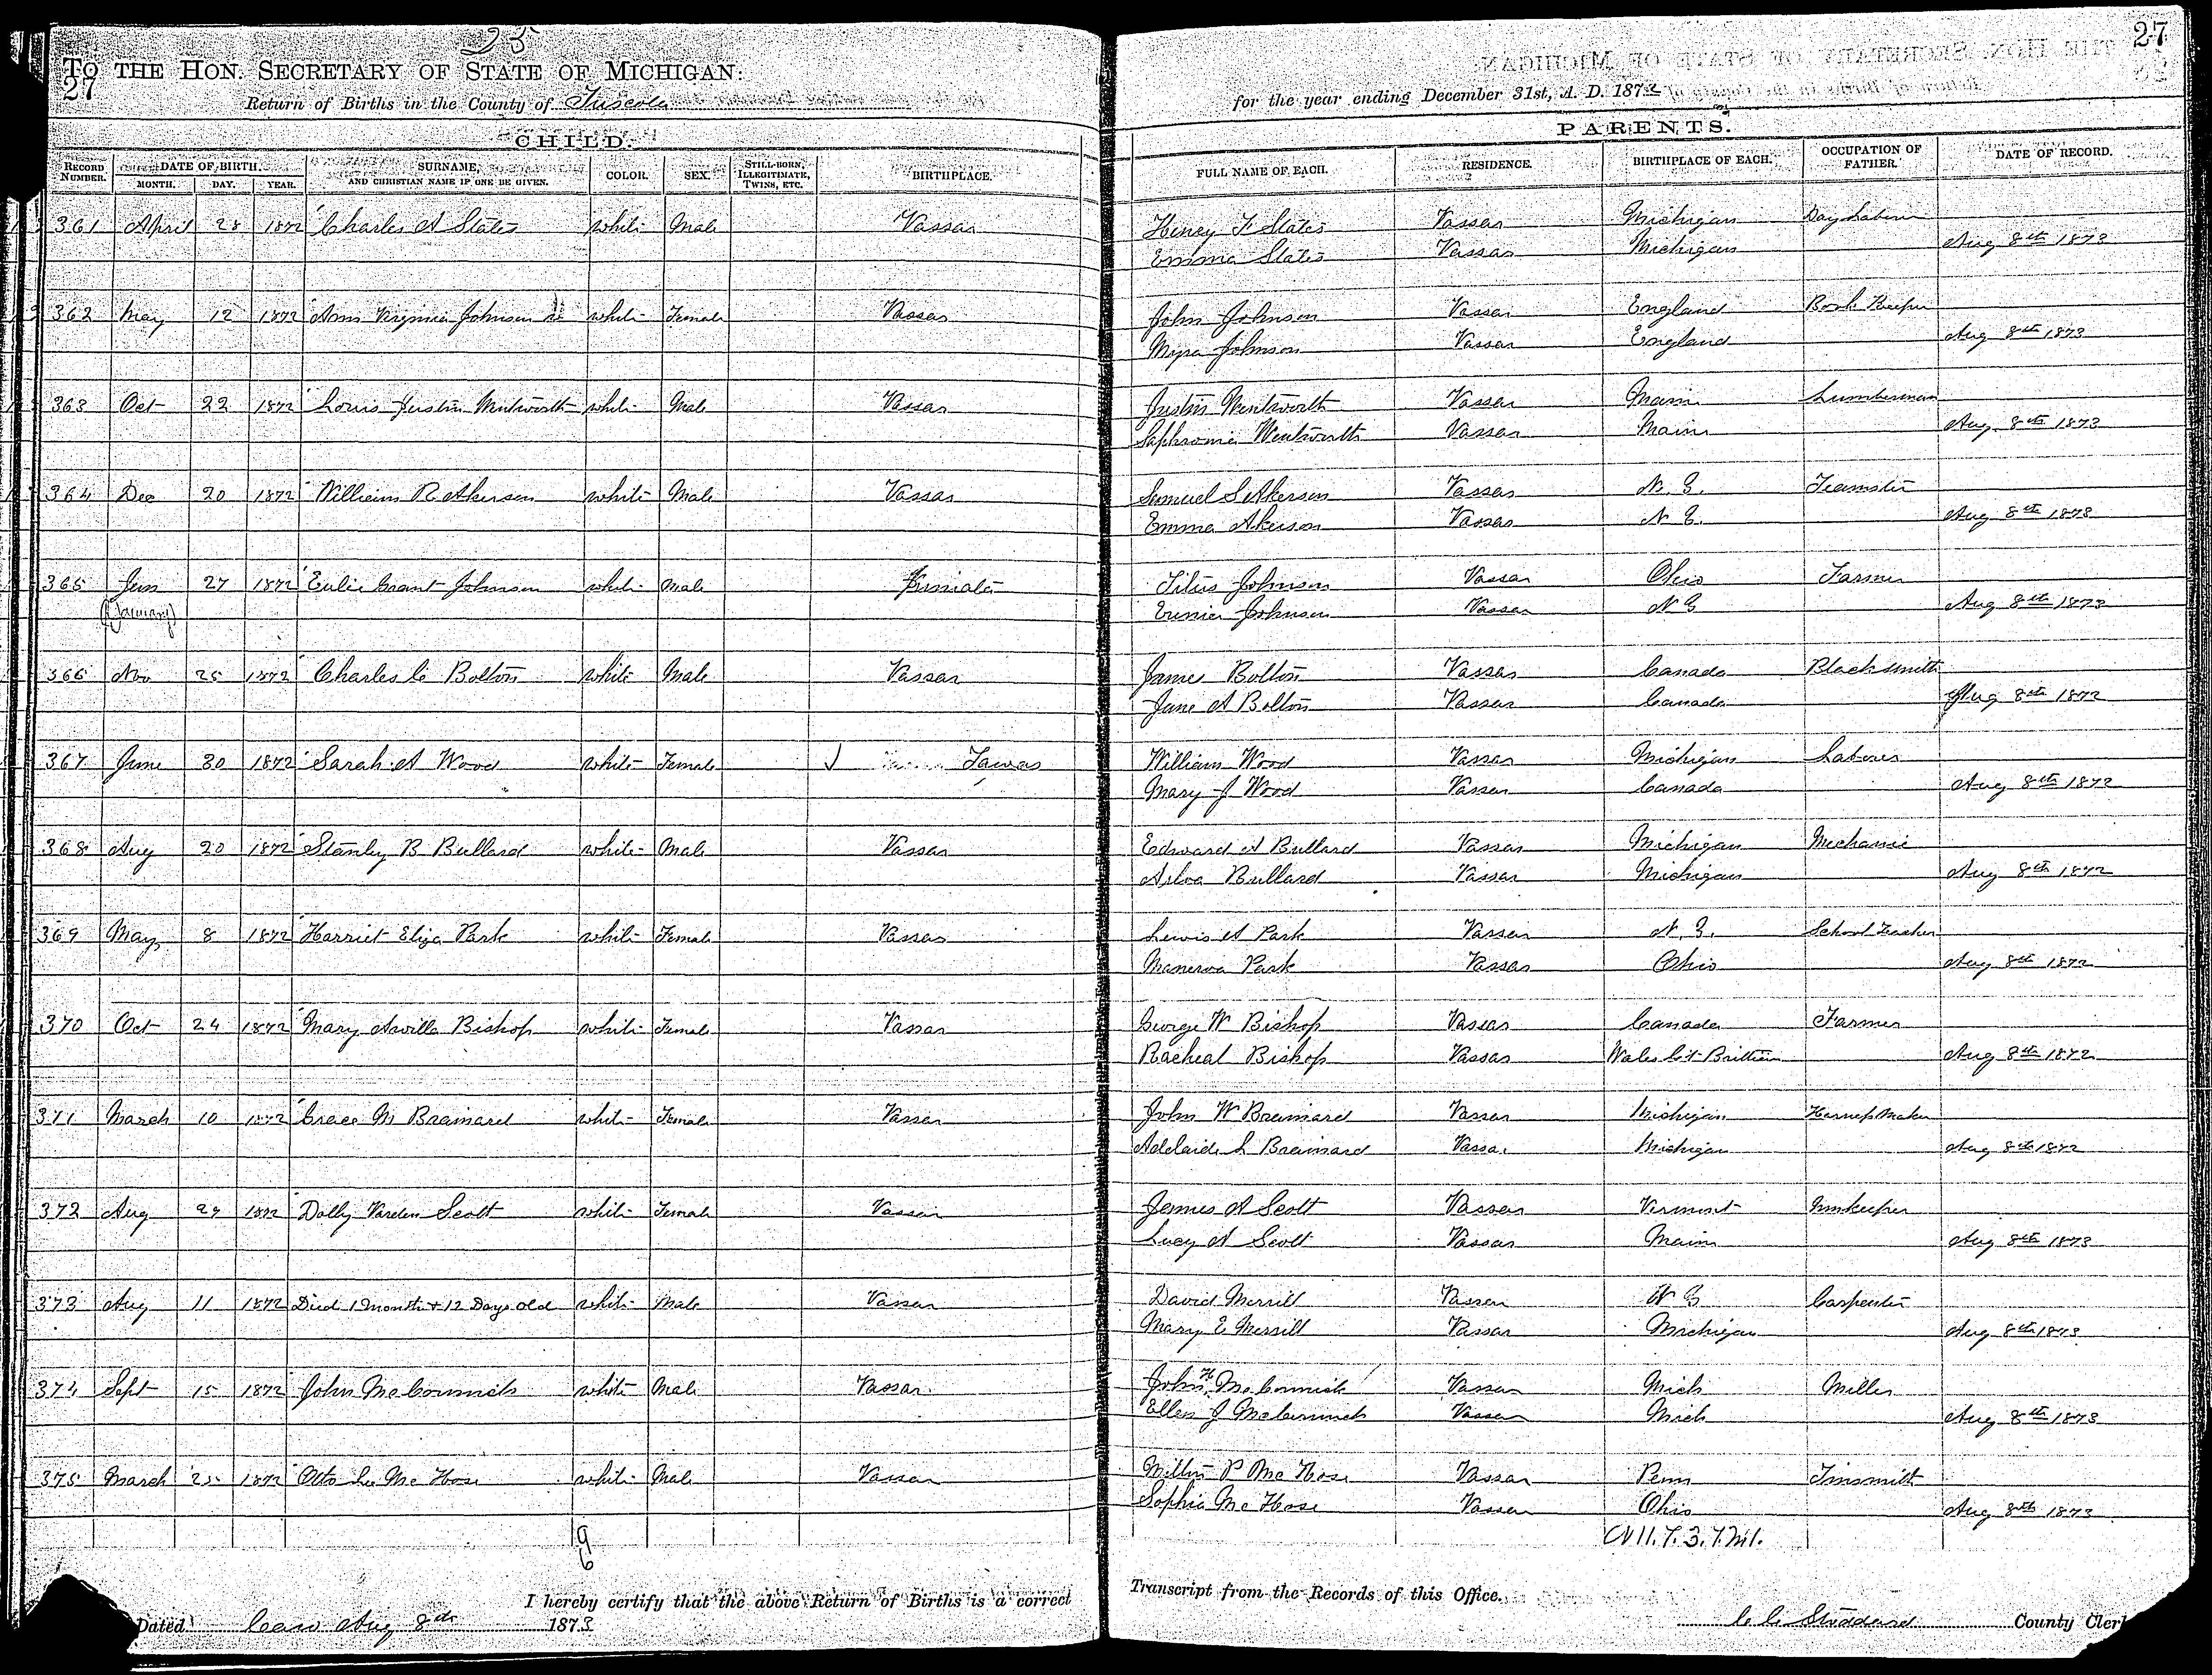 25
27
TO THE HON. SECRETARY OF STATE OF MICHIGAN:
27
Return of Births in the County of Tuscola for the year ending December 31st, A. D. 1872
CHILD. PARENTS.
RECORD NUMBER. DATE OF BIRTH. MONTH. DAY. YEAR. SURNAME, AND CHRISTIAN NAME IF ONE BE GIVEN. COLOR. SEX. STILL-BORN, ILLEGITIMATE, TWINS, ETC. BIRTHPLACE. FULL NAME OF EACH. RESIDENCE. BIRTHPLACE OF EACH. OCCUPATION OF FATHER. DATE OF RECORD.
361 April 28 1872 Charles A States white Male Vassar Henry F States Vassar Michigan Day Laborer
Emma States Vassar Michigan Aug 8th 1873
362 May 12 1872 Virginia Johnson white Female Vassar John Johnson Vassar England Book Keeper
Myra Johnson Vassar England Aug 8th 1873
363 Oct 22 1872 Louis Justin Wentworth white Male Vassar Justin Wentworth Vassar Main Lumberman
Saphronia Wentworth Vassar Main Aug 8th 1873
364 Dec 20 1872 William R Akerson white Male Vassar Samuel S Akerson Vassar N. Y. Teamster
Emma Akerson Vassar N Y. Aug 8th 1873
365 Jan 27 1872 Grant Johnson white Male Juniata Titus Johnson Vassar Ohio Farmer
(January) Johnson Vassar N Y Aug 8th 1873
366 Nov 25 1872 Charles C Bolton white Male Vassar James Bolton Vassar Canada Blacksmith
Jane A Bolton Vassar Canada Aug 8th 1872
367 June 30 1872 Sarah A Wood white Female Tawas William Wood Vassar Michigan Laborer
Mary J Wood Vassar Canada Aug 8th 1872
368 Aug 20 1872 Stanly B Bullard white Male Vassar Edward A Bullard Vassar Michigan Mechanic
Bullard Vassar Michigan Aug 8th 1872
369 May 8 1872 Harriet Eliza Park white Female Vassar Lewis A Park Vassar N. Y. School Teacher
Manerva Park Vassar Ohio Aug 8th 1872
370 Oct 24 1872 Mary Arvilla Bishop white Female Vassar George W Bishop Vassar Canada Farmer
Racheal Bishop Vassar Wales Gt Brittian Aug 8th 1872
371 March 10 1872 Grace M Brainard white Female Vassar John W Brainard Vassar Michigan Harness Maker
Adelaide L Brainard Vassar Michigan Aug 8th 1872
372 Aug 29 1872 Dolly Varden Scott white Female Vassar James A Scott Vassar Vermont Innkeeper
Lucy A Scott Vassar Main Aug 8th 1873
373 Aug 11 1872 Died 1 month + 12 Days old white Male Vassar David Merrill Vassar N Y Carpenter
Mary E Merrill Vassar Michigan Aug 8th 1873
374 Sept 15 1872 John McCormick white Male Vassar John H McCormick Vassar Mich Miller
Ellen J McCormick Vassar Mich Aug 8th 1873
375 March 25 1872 Otto Lee McHose white Male Vassar Milton P McHose Vassar Penn Tinsmith
Sophia McHose Vassar Ohio Aug 8th 1873
9
6
I hereby certify that the above Return of Births is a correct Transcript from the Records of this Office.
Dated Caro Aug 8th 1873 C C Stoddard County Clerk